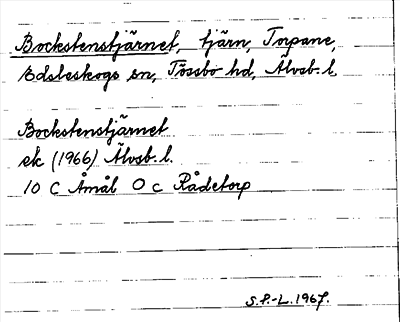 Bockstenstjärnet, tjärn, Torpane,
Edsleskogs sn, Tössbo hd, Älvsb. l.
Bockstenstjärnet
ek (1966) Älvsb. l.
10 C Åmål 0 c Rådetorp
S.P.-L. 1967.